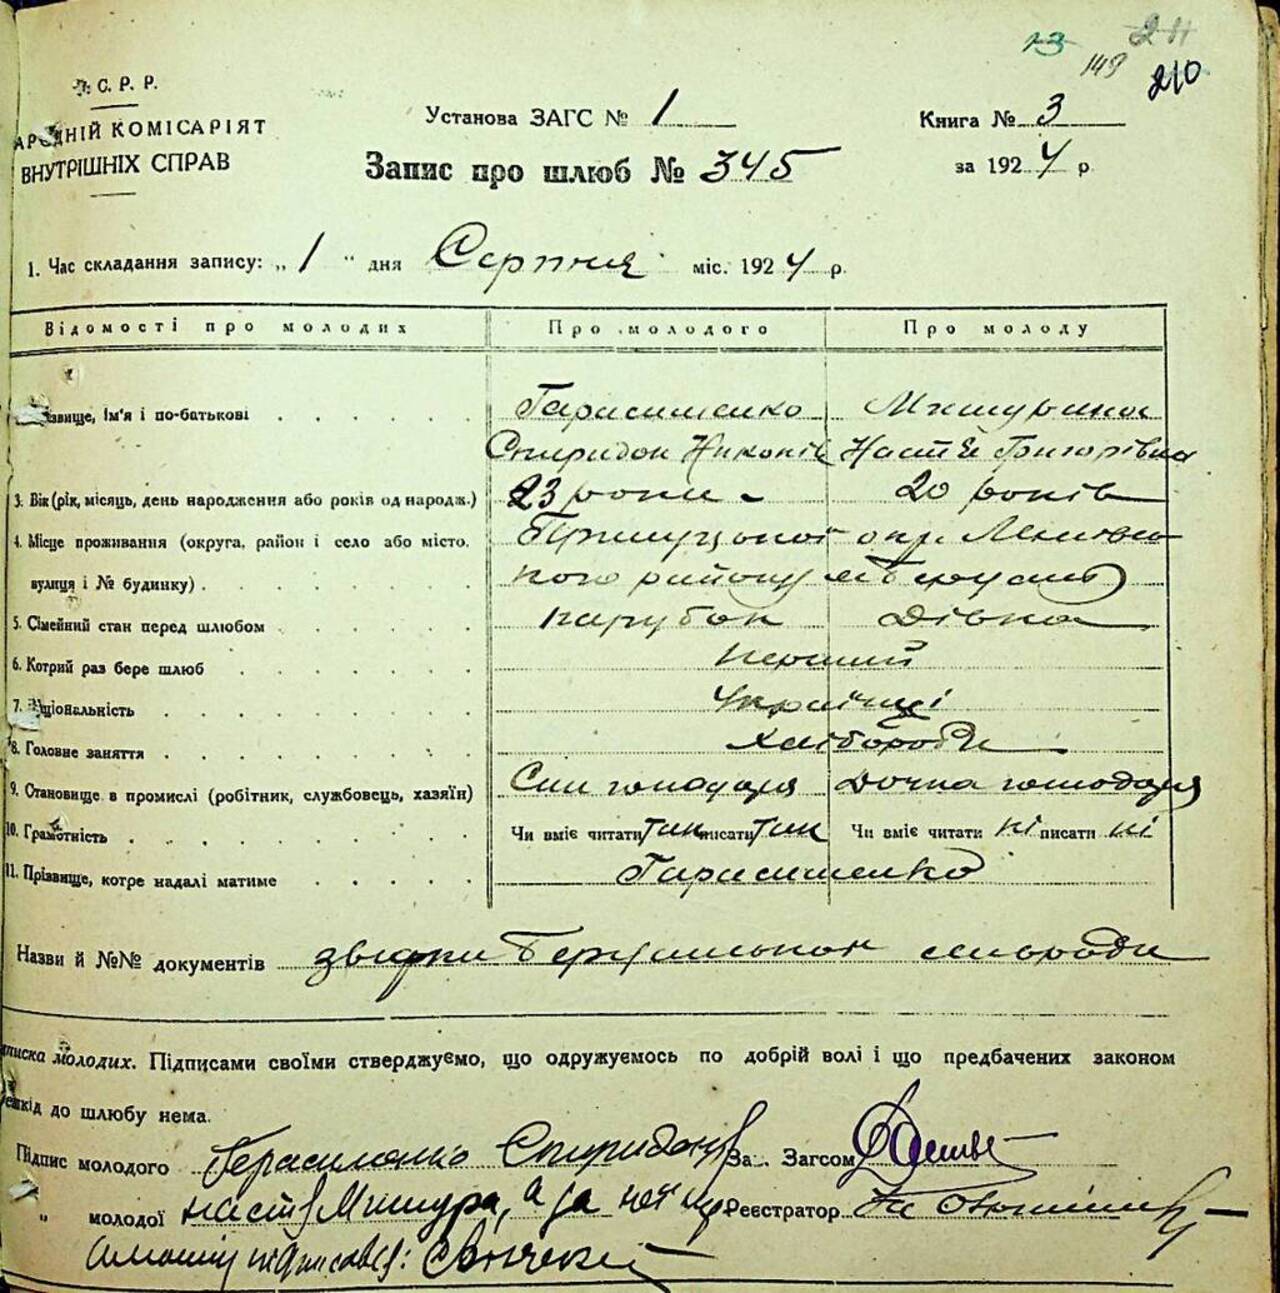 13 24
149 210
С. Р. Р.
Установа ЗАГС № 1 Книга № 3
АРОДНІЙ КОМІСАРІЯТ
ВНУТРІШНІХ СПРАВ
Запис про шлюб № 345 за 1924 р.
1. Час складання запису: „ 1 " дня Серпня міс. 1924 р.
Відомості про молодих Про молодого Про молоду
звище, ім'я і по-батькові Гарасименко
Спиридон Никонів Настя Григорівна
3. Вік (рік, місяць, день народження або років од народж.) 23 роки 20 років
4. Місце проживання (округа, район і село або місто, Прилуцької окр.
вулиця і № будинку) кого району
5. Сімейний стан перед шлюбом парубок Дівка
6. Котрий раз бере шлюб перший
7. Національність Українці
8. Головне заняття Хлібороби
9. Становище в промислі (робітник, службовець, хазяїн) Син господаря Дочка господаря
10. Грамотність Чи вміє читати так писати так Чи вміє читати ні писати ні
11. Прізвище, котре надалі матиме Гарасименко
Назви й №№ документів сільради
писка молодих. Підписами своїми стверджуємо, що одружуємось по добрій волі і що предбачених законом
ешкід до шлюбу нема.
Підпис молодого Герасименко Спиридон За. Загсом
" молодої Настя Мишура, а за неї Реєстратор
підписався: